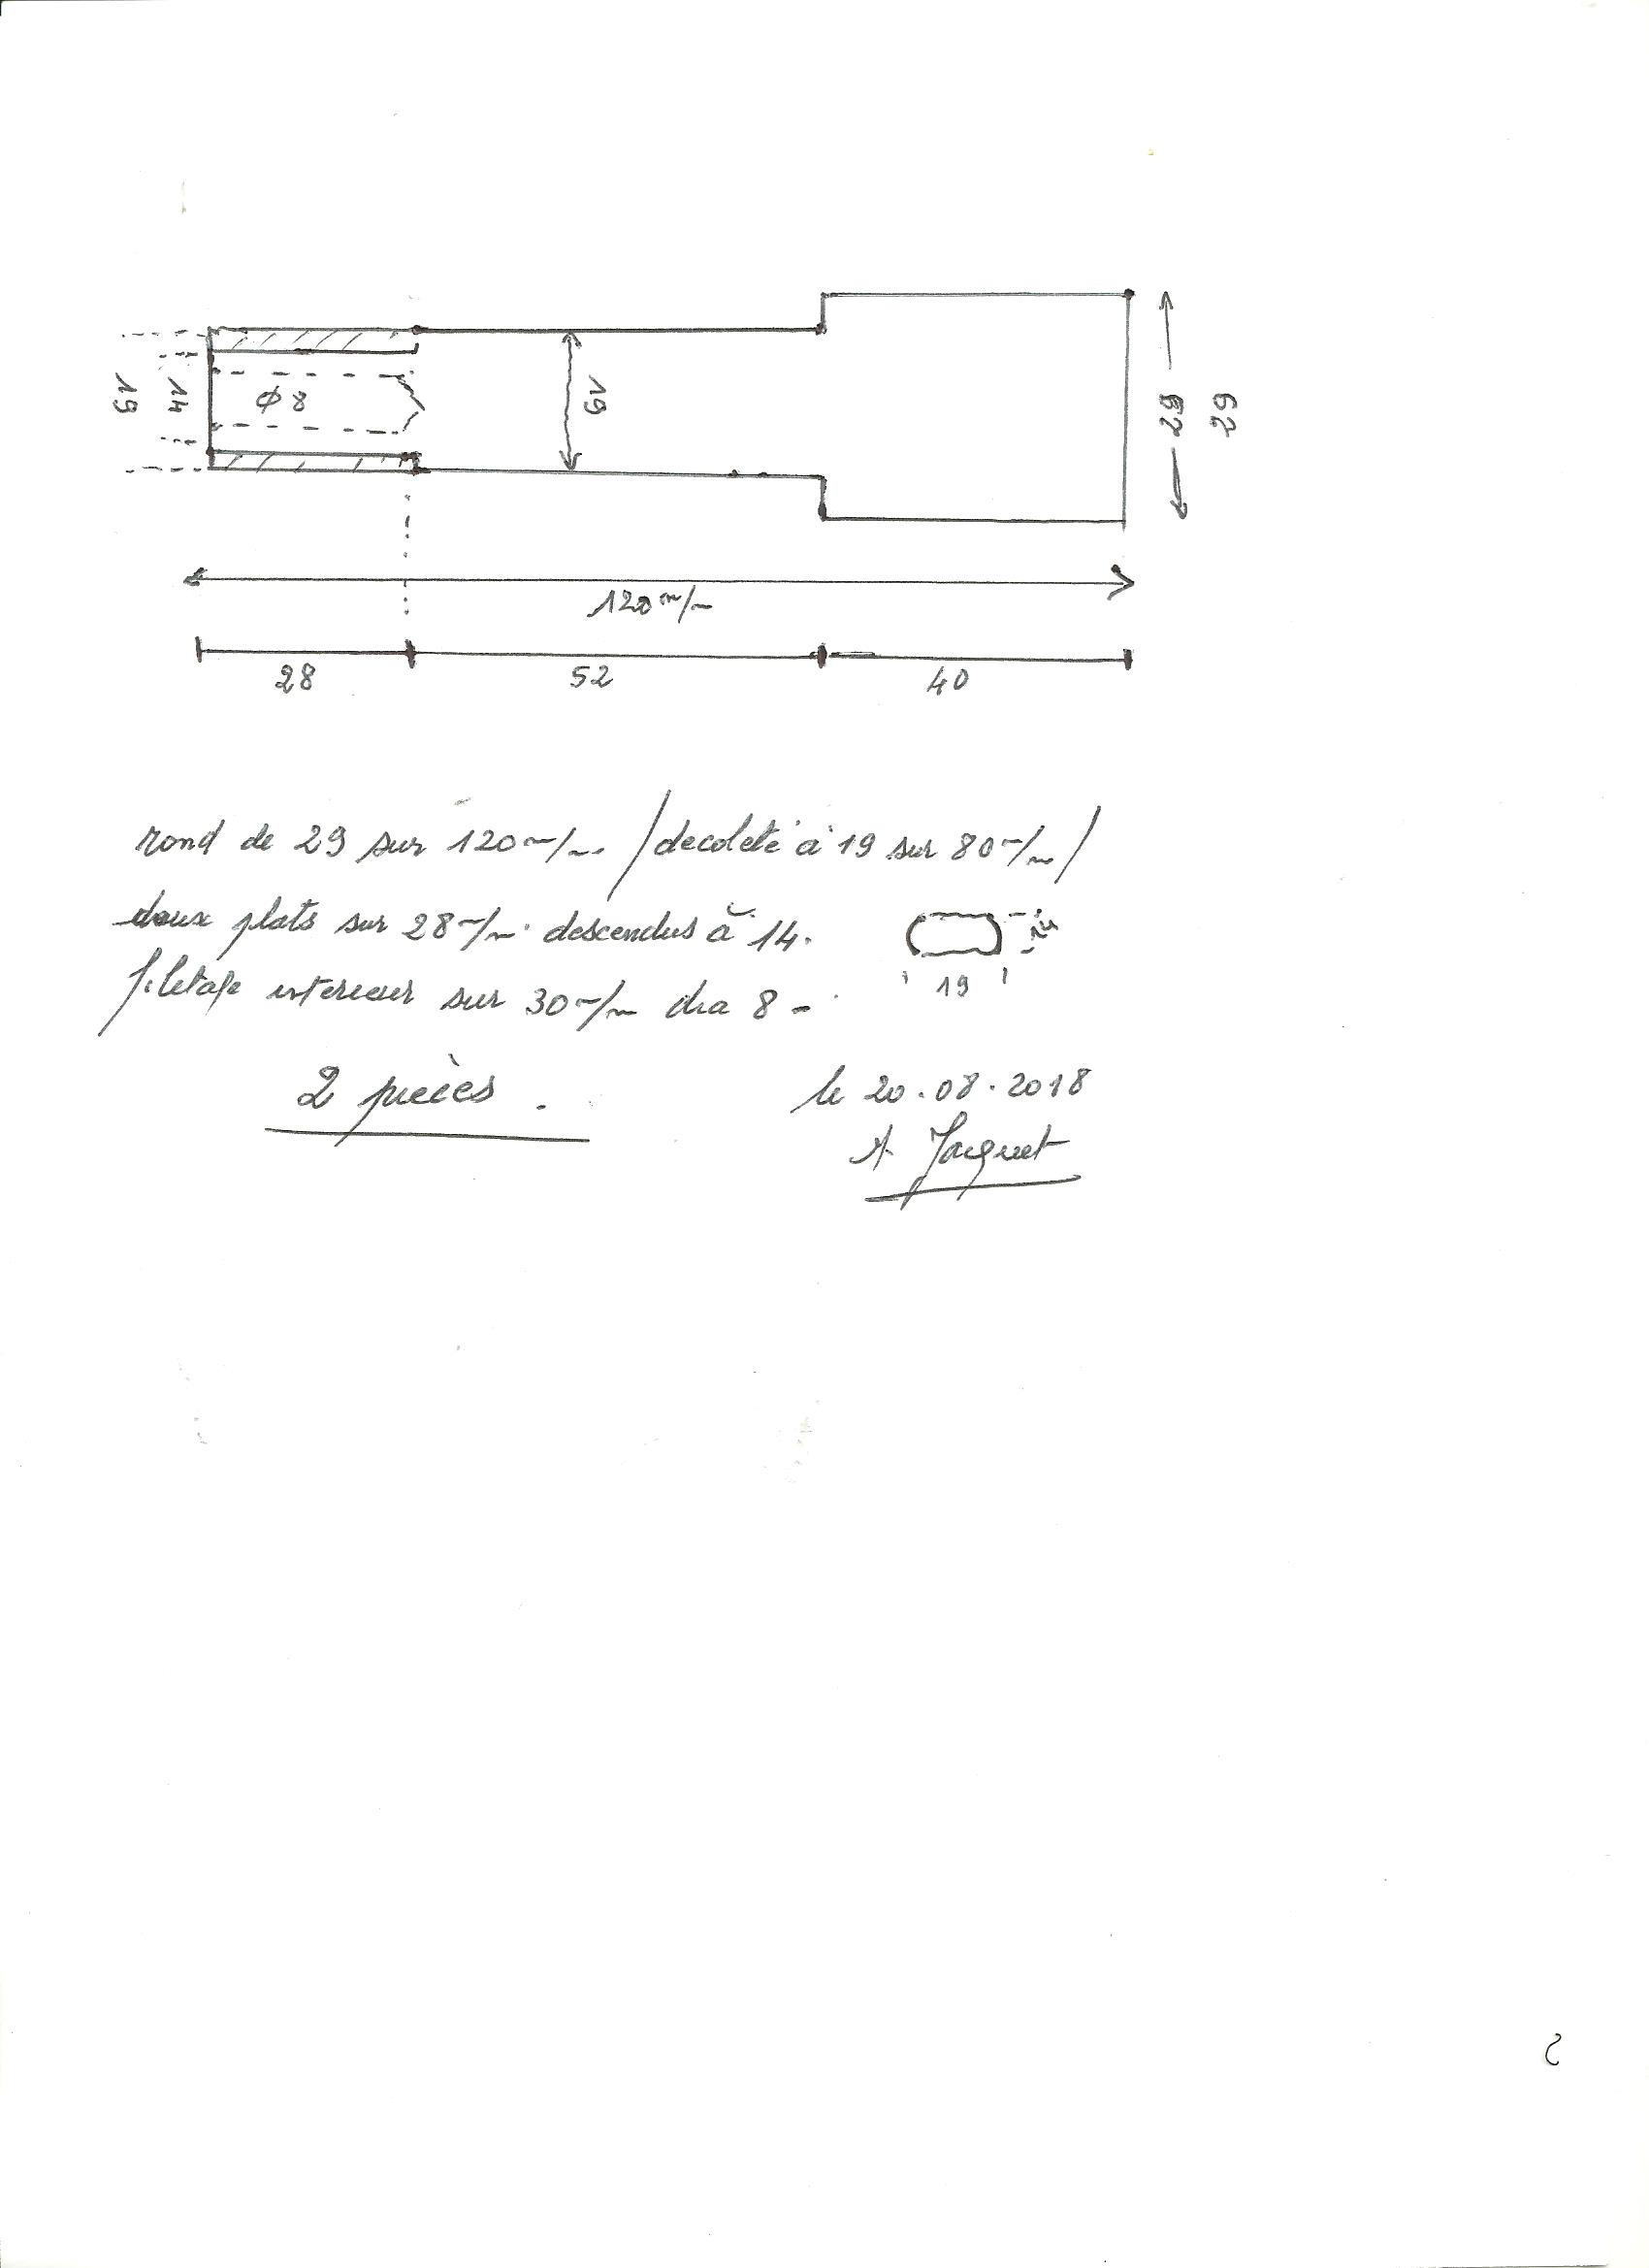 19
14
φ 8
19
29
29
120 m/m
28
52
40
rond de 29 sur 120 m/m. / decoleté à 19 sur 80 m/m /
deux plats sur 28 m/m. descendus à 14.
14
19
filetage interieur sur 30 m/m dia 8 -
2 pièces.
le 20.08.2018
A Jacquet